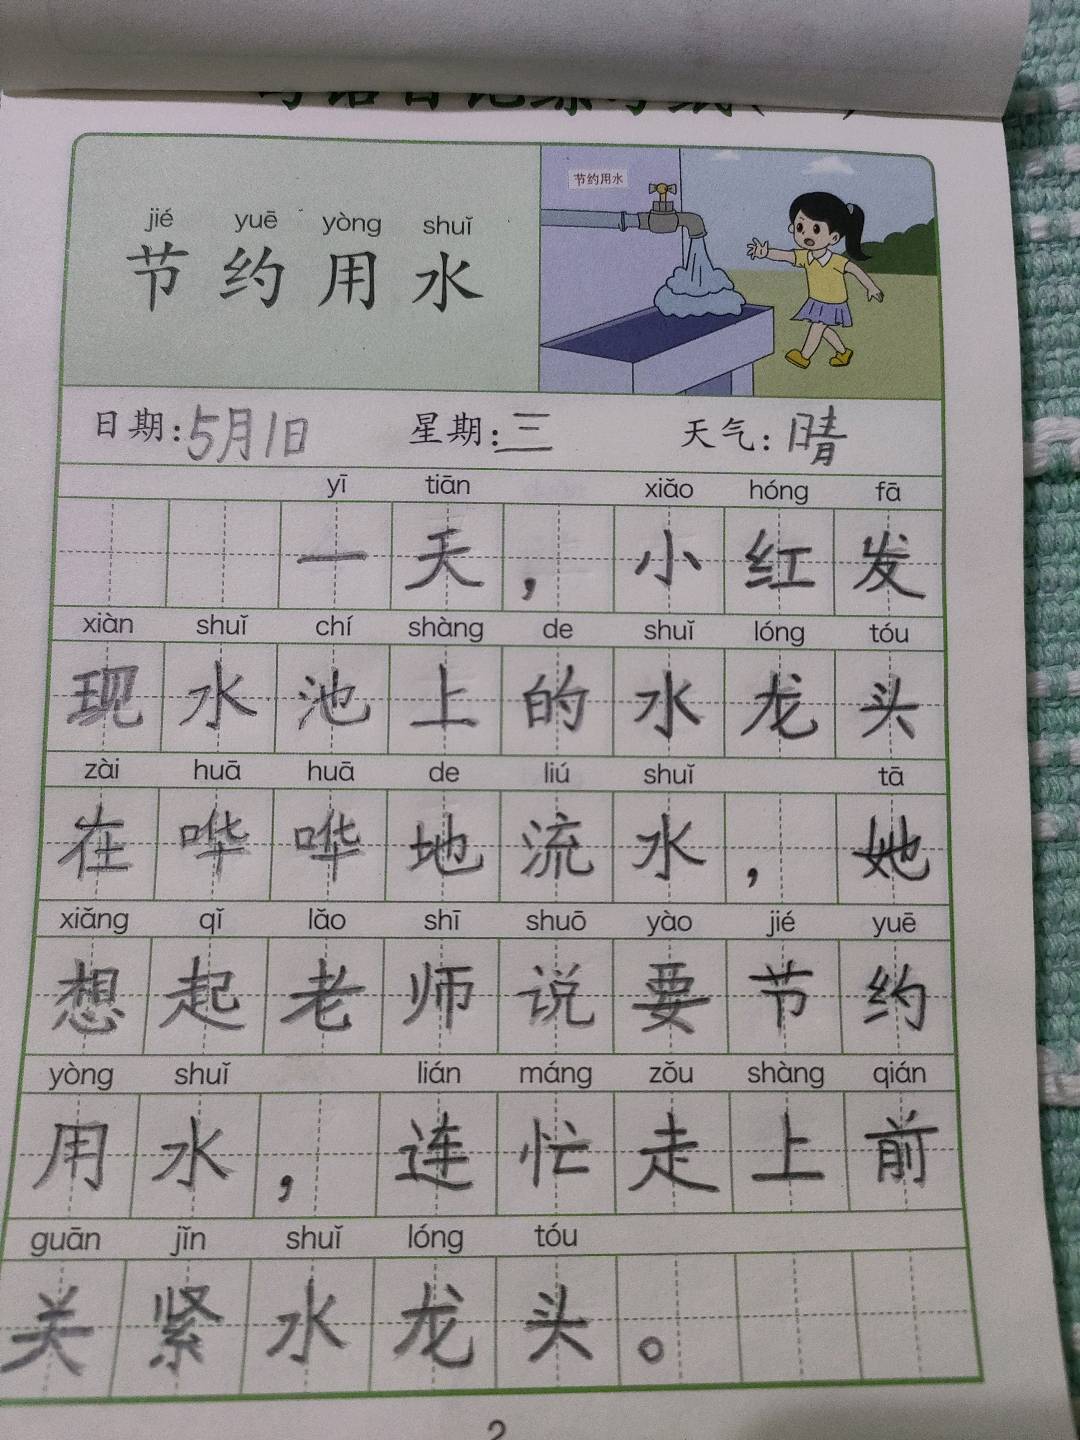 jié yuē yòng shuǐ
节约用水
节约用水
日期:5月1日 星期:三 天气:晴
yī tiān xiǎo hóng fā
一天，小红发
xiàn shuǐ chí shàng de shuǐ lóng tóu
现水池上的水龙头
zài huā huā de liú shuǐ tā
在哗哗地流水，她
xiǎng qǐ lǎo shī shuō yào jié yuē
想起老师说要节约
yòng shuǐ lián máng zǒu shàng qián
用水，连忙走上前
guān jǐn shuǐ lóng tóu
关紧水龙头。
2